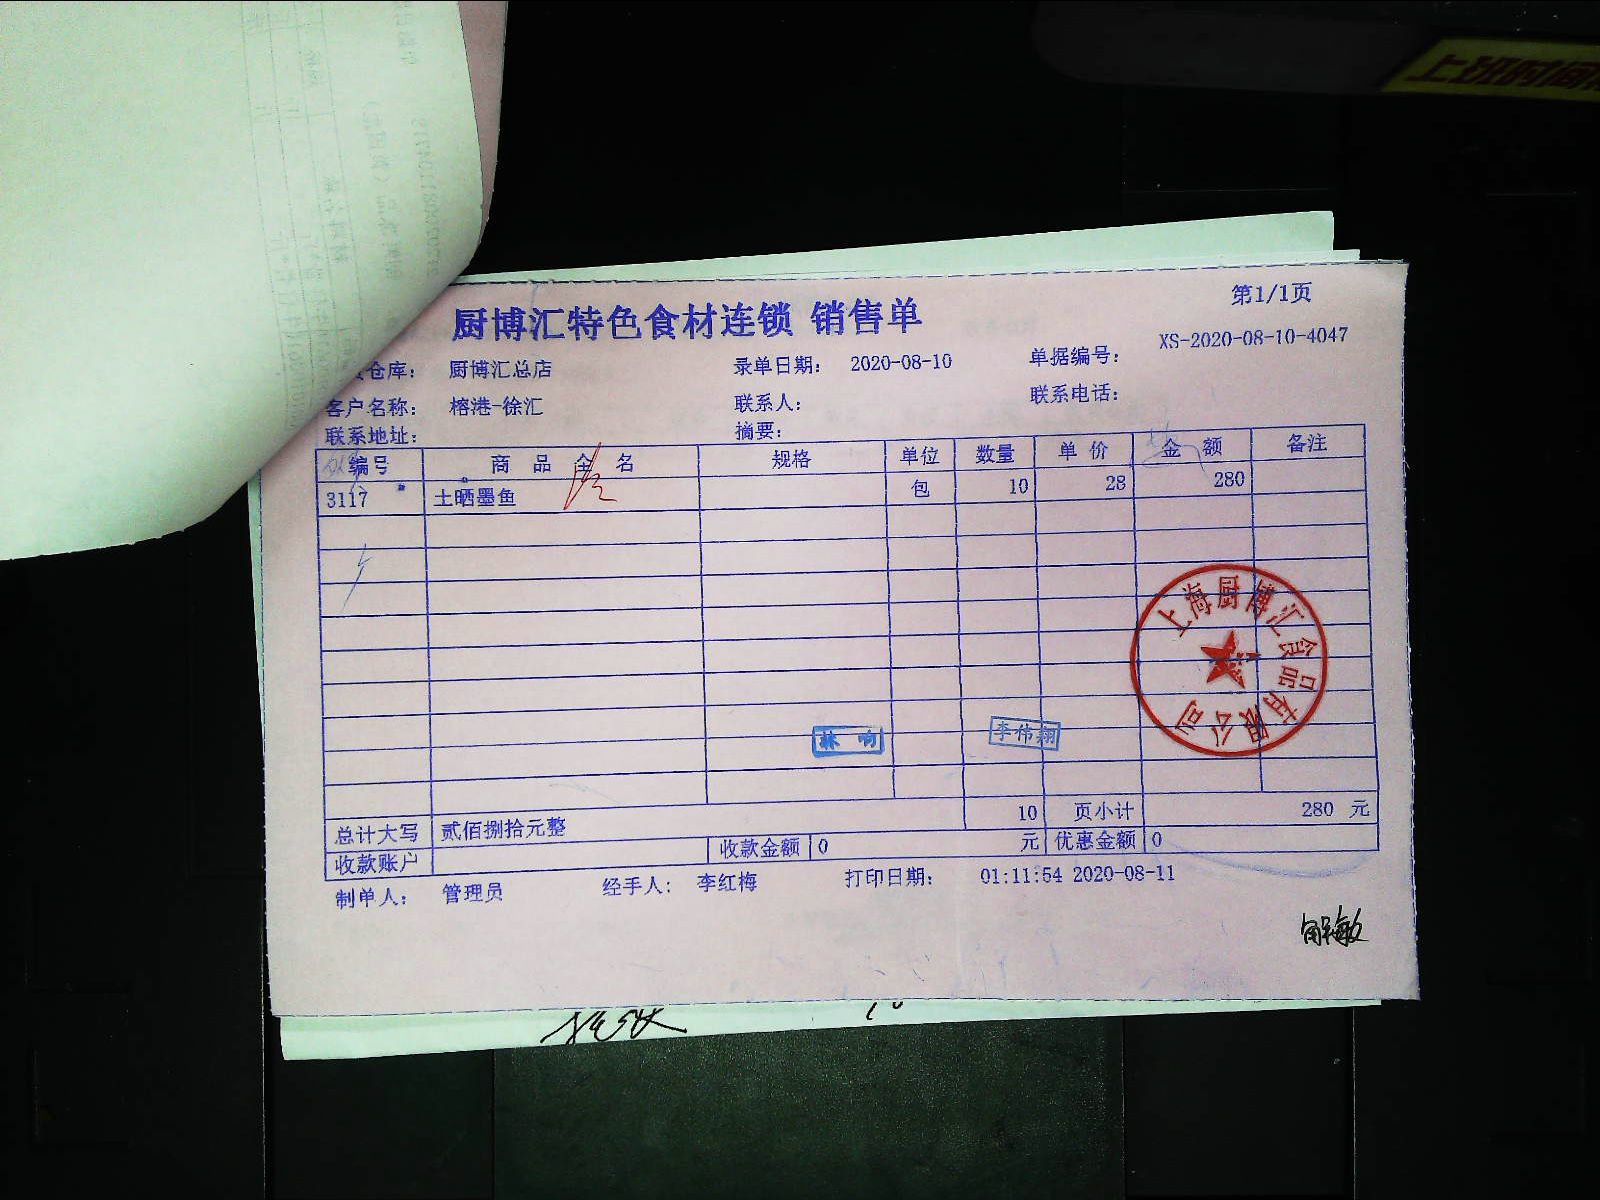 上班时间
第1/1页
厨博汇特色食材连锁 销售单
仓库： 厨博汇总店 录单日期： 2020-08-10 单据编号： XS-2020-08-10-4047
客户名称： 榕港-徐汇 联系人： 联系电话：
联系地址： 摘要：
编号 商品全名 规格 单位 数量 单价 金额 备注
3117 土晒墨鱼 包 10 28 280
上海厨博汇食品有限公司
林响 李伟翔
总计大写 贰佰捌拾元整 10 页小计 280 元
收款账户 收款金额 0 元 优惠金额 0
制单人： 管理员 经手人： 李红梅 打印日期： 01:11:54 2020-08-11